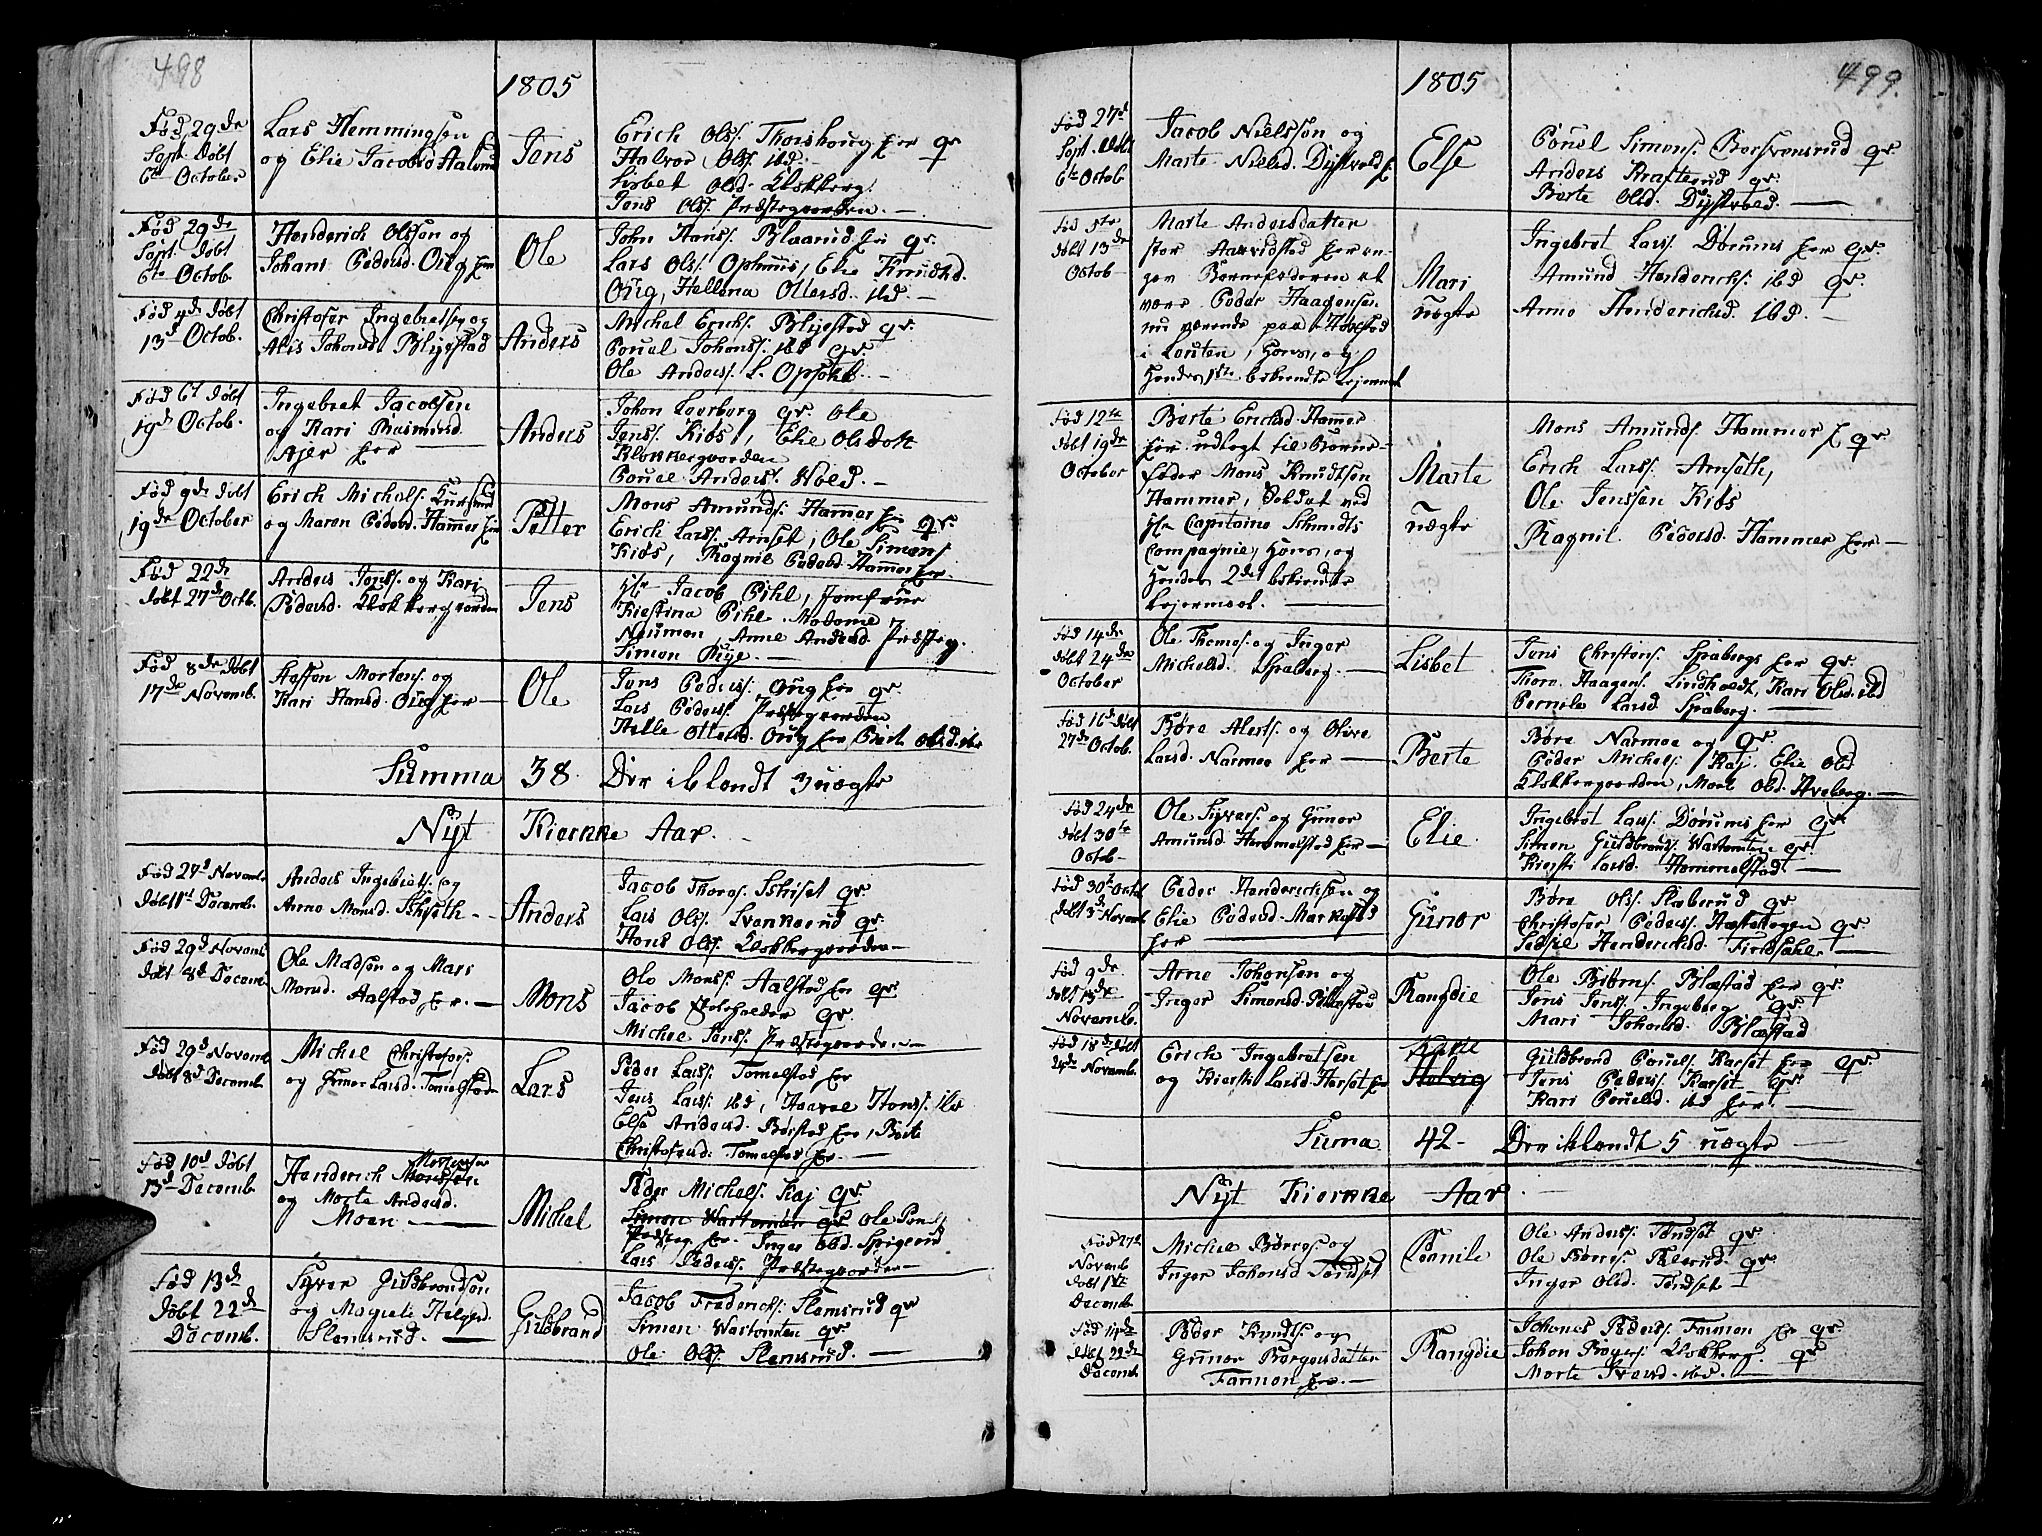 498
1805
Fød 29de
Sept. døbt
6te October
Lars Hemmingsen
og Elie Jacobsd Aalund
Jens
Erich Olss. Thorshoug her gr
Halvor Olss. ibd.
Lisbet Olsd. Klokkerg.
Jens Olss. Præstegaarden. —
Fød 29de
Sept. døbt
6te Octob.
Henderich Olssen og
Johane Pedersd. Oug her
Ole
John Hanss. Blaarud her gr.
Lars Olss. Ophuus, Elie Knudsd.
Oug, Hellena Olersd. ibd —
Fød 4de døbt
13d Octob.
Christofer Ingebretss. og
Alis Johansd. Blyestad
Anders
Michel Erichs. Blyestad gr.
Pouel Johanss. ibd gr.
Ole Anders. L. Opsahl. —
Fød 6t døbt
19de Octob.
Ingebret Jacobsen
og Kari Rasmusd.
Ajer her —
Anders
Johan Loerborg gr. Ole
Jenss. Kiøs, Elie Olsdatt
Klokkergaarden
Pouel Anders. Wold. —
Fød 9de døbt
19de October
Erich Michels.
og Maren Pedersd. Hammer her
Petter
Mons Amunds. Hammer her gr.
Erich Larss. Arnset, Ole Simens.
Kiøs, Ragnil Pedersd. Hammer her.
Fød 22de
døbt 27de Octb.
Anders Jenss. og Kari
Pedersd. Klokkergaarden
Jens
Hr Jacob Pihl, Jomfrue
Kiestina Pihl. Madame
Neuman, Anne Andersd. Præsteg.
Simon Rye. —
Fød 8de døbt
17de Novemb.
Hoften Mortens. og
Kari Hansd. Oug her —
Ole
Jens Peders. Oug her gr.
Lars Peders. Præstegaarden
Helle Ottersd. Oug her Berte Olsd. ibd
Summa 38. Der iblandt 3 uægte
Nyt Kierkke Aar. —
Fød 27d Novemb.
døbt 1st Decemb.
Anders Ingebrets. og
Anne Monsd. Schiseth —
Anders
Jacob Thoress. Schiset gr.
Lars Olss. Svenkerud gr.
Hans Olss. Klokkergaarden —
Fød 29d Novemb.
døbt 8d Decemb.
Ole Madsen og Mari
Monsd. Aalstad her. —
Mons
Ole Monss. Aalstad her gr.
Jacob Skoleholder gr.
Michel Jenss. Præstegaarden —
Fød 29d Novemb.
døbt 8d Decemb.
Michel Christofers.
og Gunor Larsd. Tomelstad
Lars
Peder Larss. Tomelstad her
Jens Larss. ibd, Haavel Hans. ibd
Else Andersd. Børstad her, Berte
Christofersd. Tomelstad her. —
Fød 10d døbt
13d Decemb.
Mortensen
Henderich Monssen
og Marte Andersd.
Moen —
Michel
Peder Michels. Kaj gr.
Simon Wartomten gr. Ole Pouls.
Præsteg her. Inger Olsd. Spigerud
Lars Pederss. Præstegaarden —
Fød 13de
døbt 22de
Decemb.
Syver Guldbrandsen
og Magnil Helgesd.
Slemsrud. —
Guldbrand
Jacob Frederichs. Slemsrud gr
Simen Wartomten gr.
Ole Olss. Slemsrud. —
499.
1805
Fød 27d
Sept. døbt
6te Octob
Jacob Nielssen og
Marte Nielsd. Dystvold h.
Else
Pouel Simens. Borsvensrud gr.
Anders Krafterud gr.
Berte Olsd. Dystvold. —
Fød 5te
døbt 13de
Octob —
Marte Andersdatter
stor Aarvidstad her an-
gav Barnefaderen at
være Peder Haagensen
nu værende paa Hoelstad
i Leuten, hans, og
hendes 1ste bekiendte Lejermaal
Mari
uægte
Ingebret Larss. Dørums her gr.
Amund Henderichs. ibd gr.
Anne Henderichsd. ibd. —
Fød 12te
døbt 19de
October
Berte Erichsd. Hammer
her udlagt til Barne-
fader Mons Knudtsen
Hammer, Soldat ved
Hr Capitaine Schmidts
Compagnie, hans, og
hendes 2de bekiendte
Lejermaal. —
Marte
uægte
Mons Amunds. Hammer h. gr.
Erich Larss. Arnseth,
Ole Jenssen Kiøs
Ragnil Pedersd. Hammer her —
Fød 14de
døbt 24de
October
Ole Thomes. og Inger
Michelsd. Spaberg. —
Lisbet
Jens Christens. Spaberg her gr.
Thore Haagens. Lindholdt, Kari Olsd. ibd
Pernele Larsd Spaberg. —
Fød 16d døbt
27de Octob.
Børe Alests. og Olive
Larsd. Narmoe her —
Berte
Børe Narmoe og gr.
Peder Michels. Kaj. Elie Olsd
Klokkergaarden, Marte Olsd. Aveberg. —
Fød 24de
døbt 30te
Octob —
Ole Syvers. og Gunor
Amundsd. Hommelstad her —
Elie.
Ingebret Larss. Dørums her gr.
Simen Guldbrands. Wartomten gr.
Kiersti Larsd. Hommelstad —
Fød 30t Octob
døbt 3d Novemb
Peder Henderichsen og
Elie Pedersd. Markestad
her —
Gunor
Børe Olss. Slaberud gr
Christofer Pederss. Hæsteskogen gr.
Sidsel Henderichsd. Firdsahl. —
Fød 9de
døbt 13de
Novemb.
Arne Johansen og
Inger Simensd. Blæstad
Rangdie
Ole Biørns. Blæstad her gr.
Jens Jenss. Ingeberg gr.
Mari Johansd. Blæstad
Fød 18de døbt
24de Novemb.
Erich Ingebretsen
og Kiersti Larsd. Horset her
Karie
Helvig
Guldbrand Pouels. Karset her gr.
Jens Pederss. Karset gr.
Kari Pouelsd. ibd her. —
Suma 42 - Der iblandt 5 uægte —
Nyt Kierkke Aar. —
Fød 27d
Novemb
døbt 1ste
Decemb
Michel Børres. og
Inger Johansd. Tøndset
Pernile
Ole Anderss. Tøndset gr.
Ole Børres. Falerud. gr.
Inger Olsd. Tøndset —
Fød 14de
døbt 22de
Decemb.
Peder Knudts. og
Gunor Borgersdatter
Farmen her. —
Rangdie
Johanes Pederss. Farmen her gr.
Johan Borgers. Klokkerg. gr
Marte Iversd. ibd. —